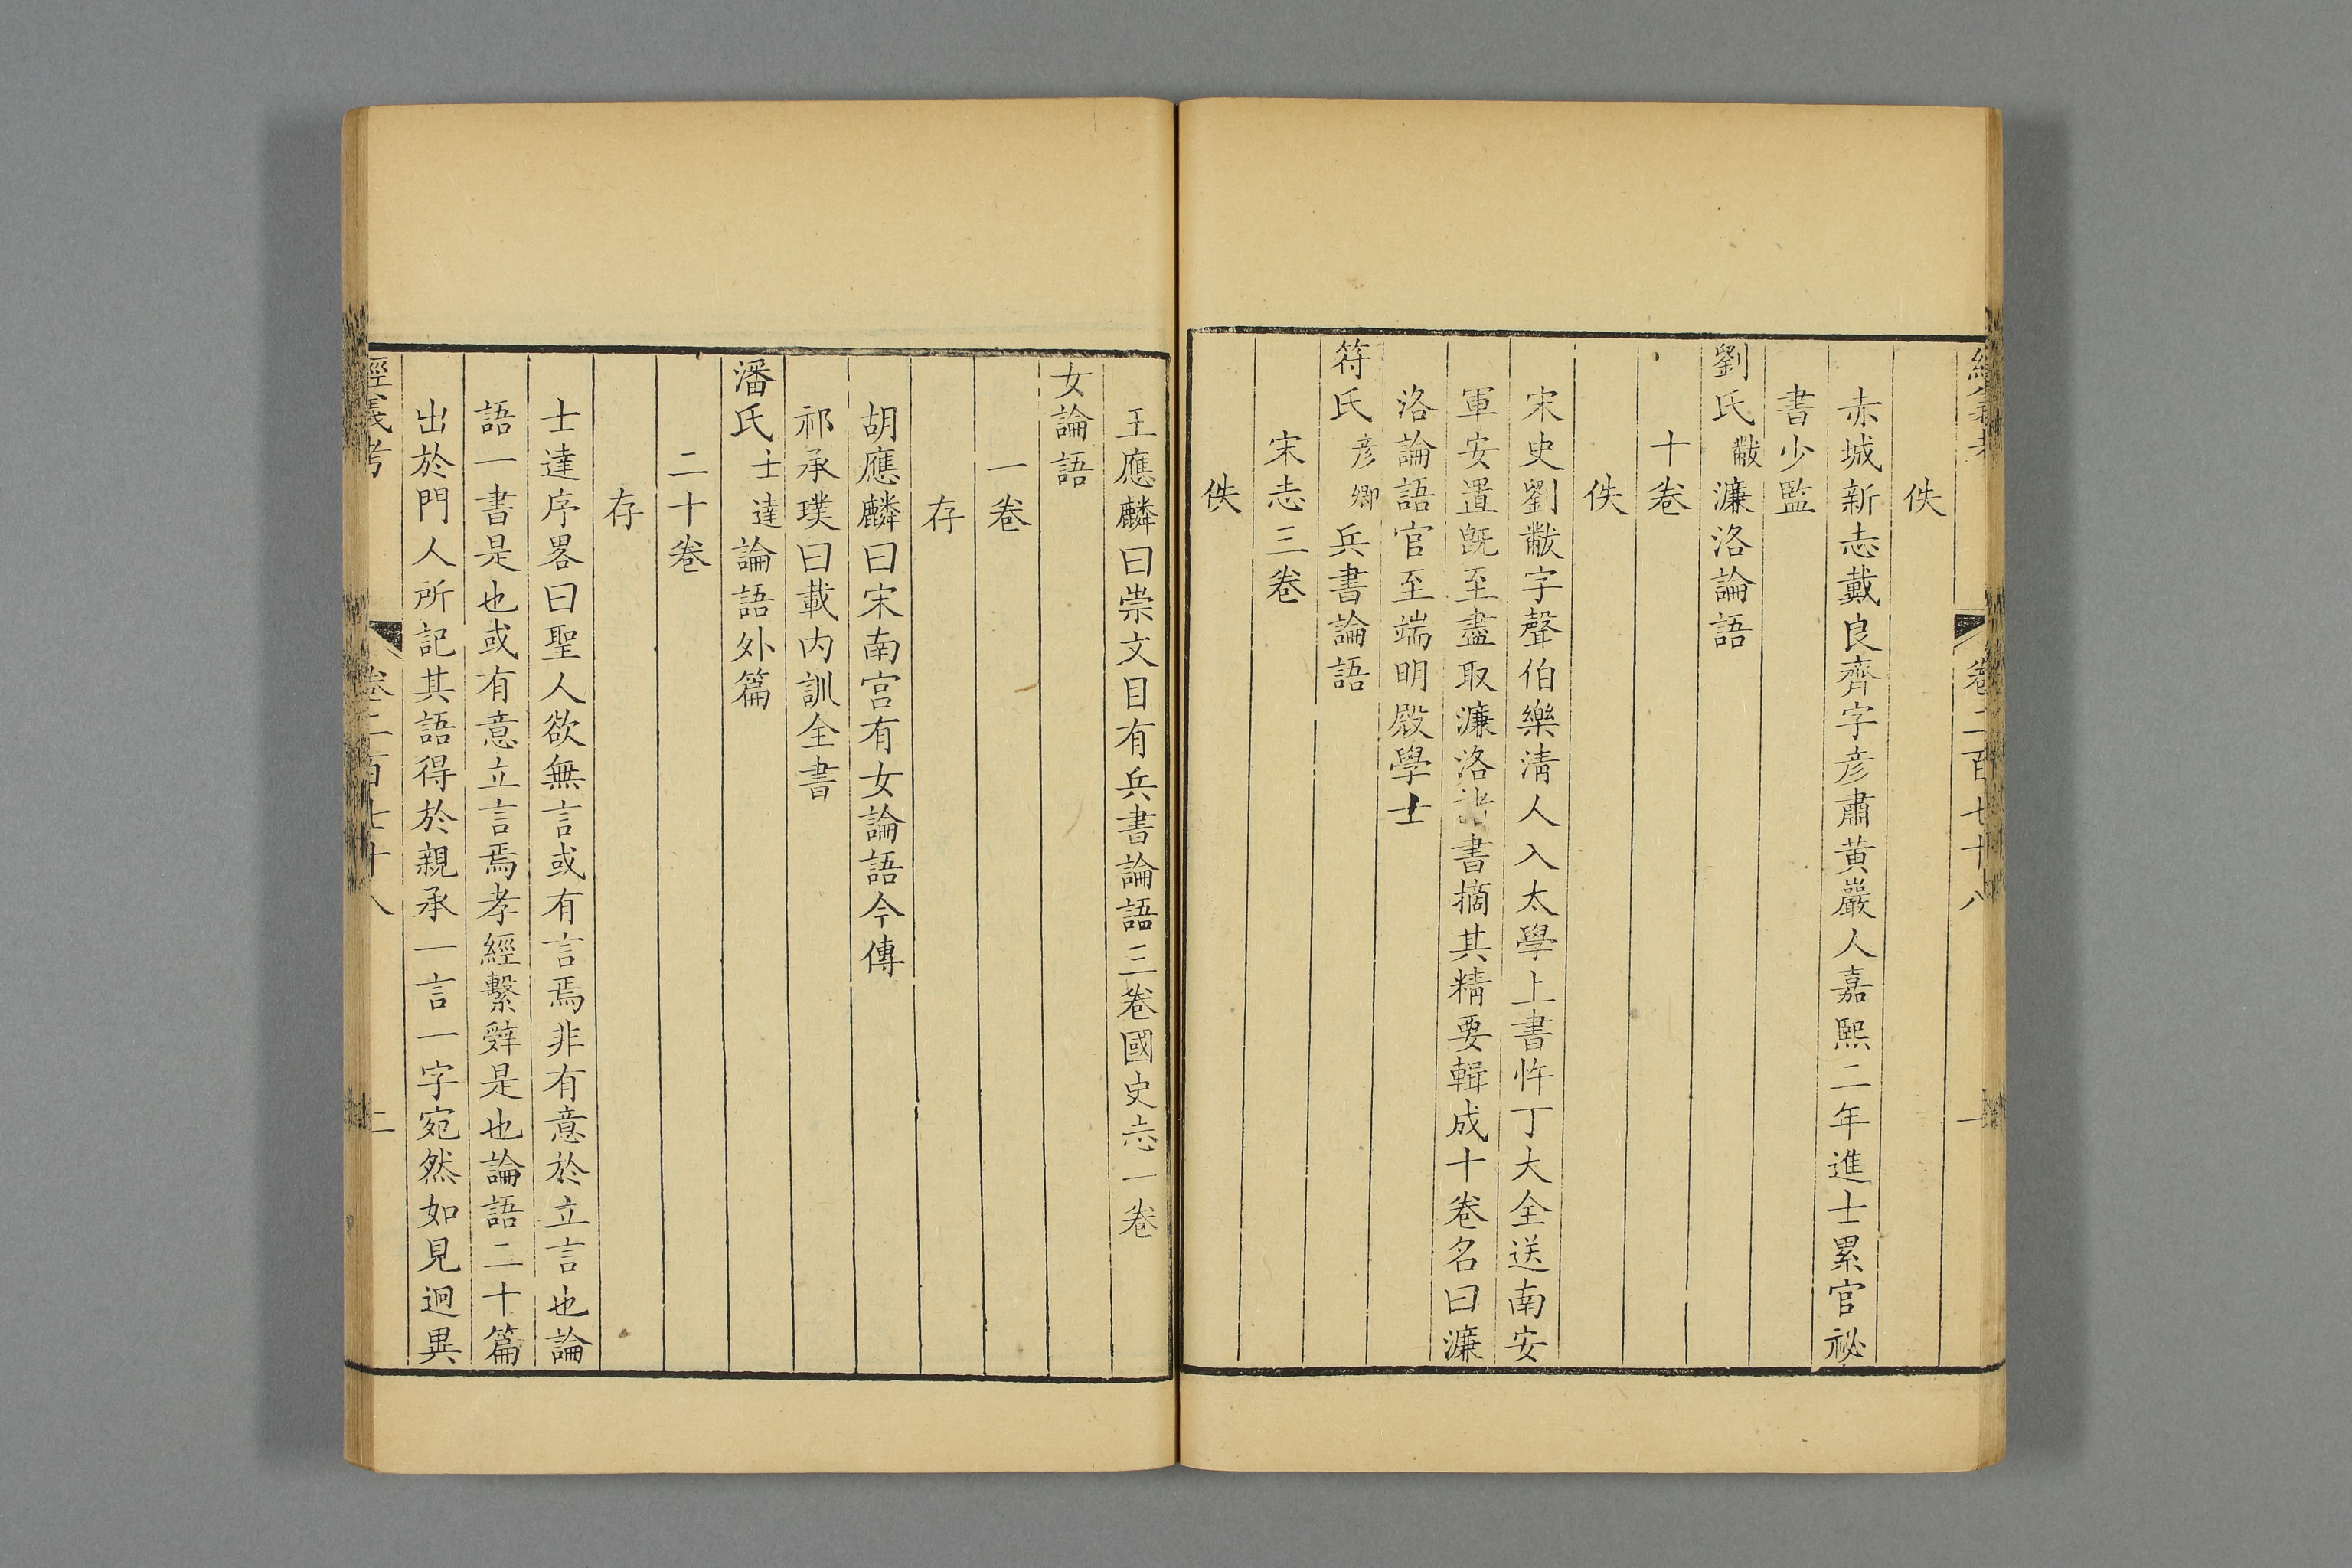 經義考 卷二百七十八 一
佚
赤城新志戴良齊字彦肅黄巖人嘉熙二年進士累官祕
書少監
劉氏黻濂洛論語
十卷
佚
宋史劉黻字聲伯樂清人入太學上書忤丁大全送南安
軍安置旣至盡取濂洛諸書摘其精要輯成十卷名曰濂
洛論語官至端明殿學士
符氏彦卿兵書論語
宋志三卷
佚
王應麟曰崇文目有兵書論語三卷國史志一卷
女論語
一卷
存
胡應麟曰宋南宫有女論語今傳
祁承㸁曰載内訓全書
潘氏士達論語外篇
二十卷
存
士達序畧曰聖人欲無言或有言焉非有意於立言也論
語一書是也或有意立言焉孝經繫辤是也論語二十篇
出於門人所記其語得於親承一言一字宛然如見迥異
經義考 卷二百七十八 二